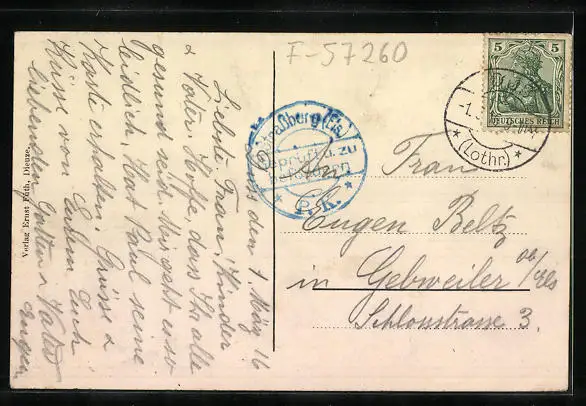 F-57260
5 5
DEUTSCHES REICH
-1.
* (Lothr) *
Straßburg (Els.)
Geprüft u. zu
befördern
* P. K. *
den 1. März 16
Liebste Frau, Kinder
& Vater. Hoffe, dass Ihr alle
gesund seid. Mir geht es so
leidlich. Hat Paul seine
Karte erhalten. Grüsse &
Küsse von Eurem Euch
liebenden Gatten & Vater
Eugen
An Frau
Eugen Beltz
in Gebweiler o/Els
Schlossstrasse 3.
Verlag Ernst Huth, Dieuze.